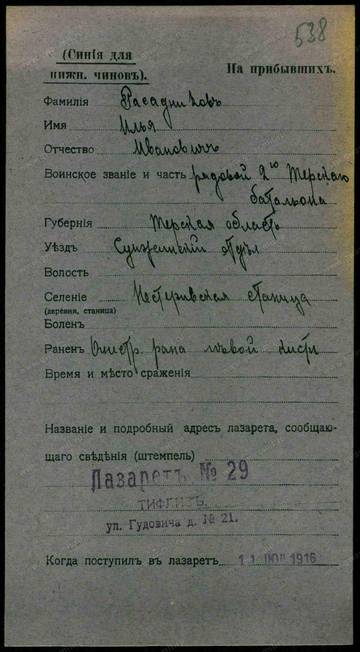 538
(Синія для
нижн. чиновъ).
На прибывшихъ.
Фамилія Расадниковъ
Имя Илья
Отчество Ивановичъ
Воинское званіе и часть рядовой 2го Терскаго
батальона
Губернія Терская область
Уѣздъ Сунженскій отдѣлъ
Волость
Селеніе Нестеровская станица
(деревня, станица)
Боленъ
Раненъ Огнестр. рана лѣвой кисти
Время и мѣсто сраженія
Названіе и подробный адресъ лазарета, сообщаю-
щаго свѣдѣнія (штемпель)
Лазаретъ № 29
ТИФЛИСЪ.
ул. Гудовича д. № 21.
Когда поступилъ въ лазаретъ 11 1916